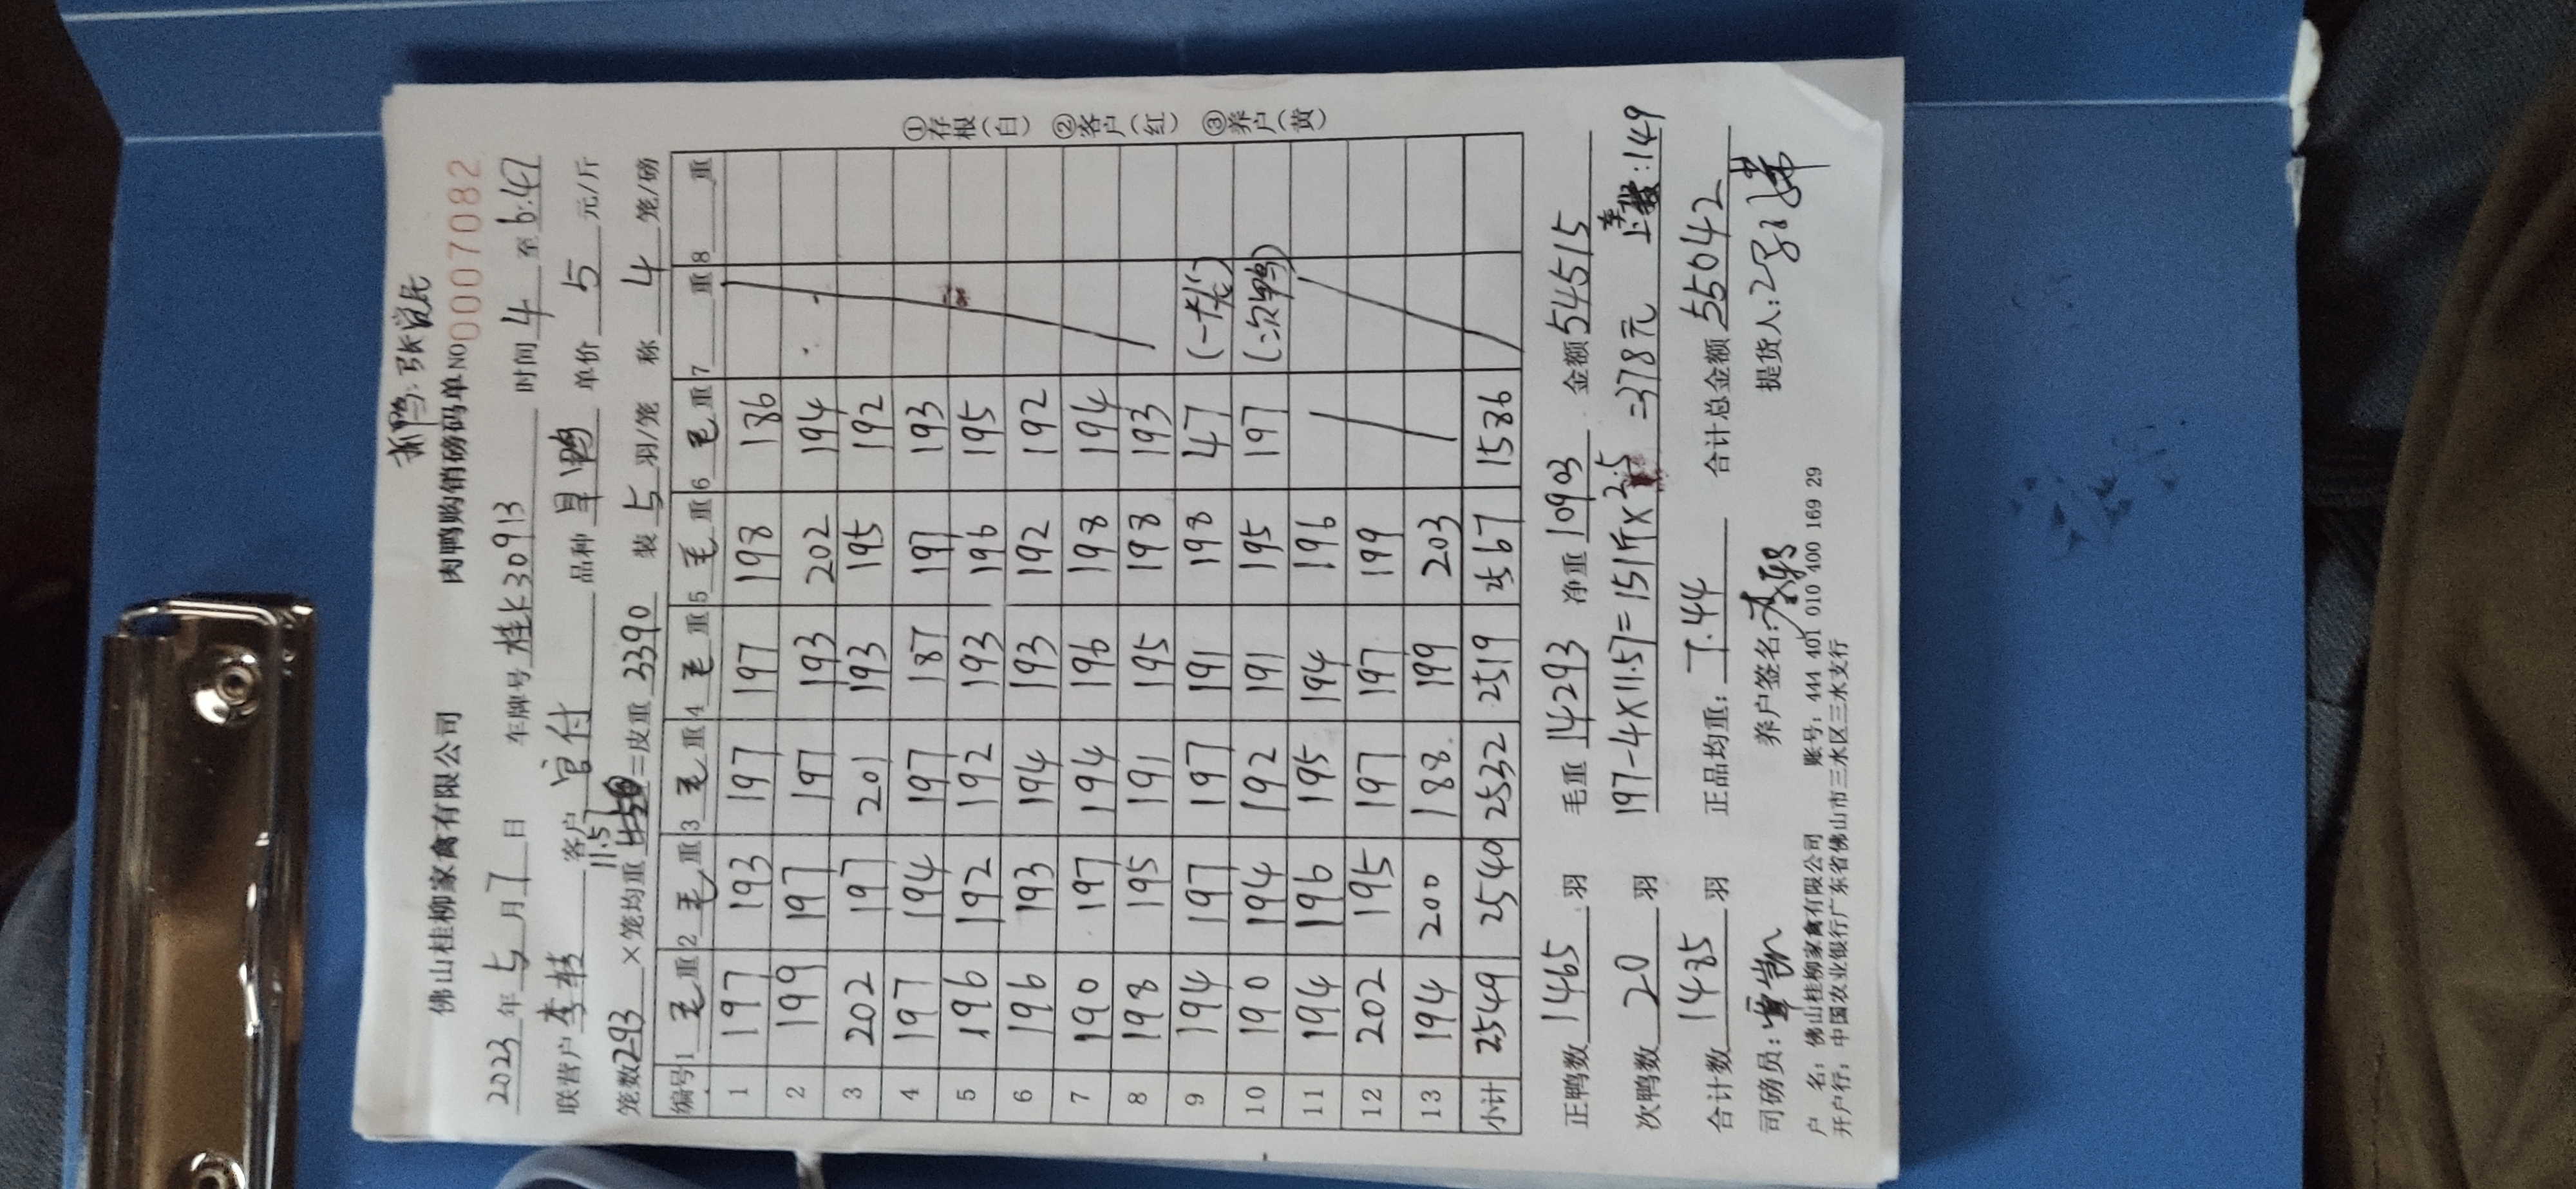 新鸭: 张
佛山桂柳家禽有限公司 肉鸭购销磅码单 NO 0007082
2023 年 5 月 7 日 车牌号 桂K30913 时间 4 至 6:47
联营户 李 客户 官付 品种 旦鸭 单价 5 元/斤
11.57
笼数 293 ×笼均重 =皮重 3390 装 5 羽/笼 称 4 笼/磅
编号 1 毛 重 2 毛 重 3 毛 重 4 毛 重 5 毛 重 6 毛 重 7 重 8 重
1 197 193 197 197 198 186
2 199 197 197 193 202 194
3 202 197 201 193 195 192
4 197 194 197 187 197 193
5 196 192 192 193 196 195
6 196 193 194 193 192 192
7 190 197 194 196 198 194
8 198 195 191 195 198 193
9 194 197 197 191 198 47 (一大龙)
10 190 194 192 191 195 197 (二次鸭)
11 194 196 195 194 196
12 202 195 197 197 199
13 194 200 188 199 203
小计 2549 2540 2532 2519 2567 1586
正鸭数 1465 羽 毛重 14293 净重 10903 金额 54515
次鸭数 20 羽 197-4×11.57=151斤×2.5=378元 :149
合计数 1485 羽 正品均重: 7.44 合计总金额 55042
司磅员: 养户签名: 提货人:
户 名: 佛山桂柳家禽有限公司 账号: 444 401 010 400 169 29
开户行: 中国农业银行广东省佛山市三水区三水支行
①存根(白) ②客户(红) ③养户(黄)